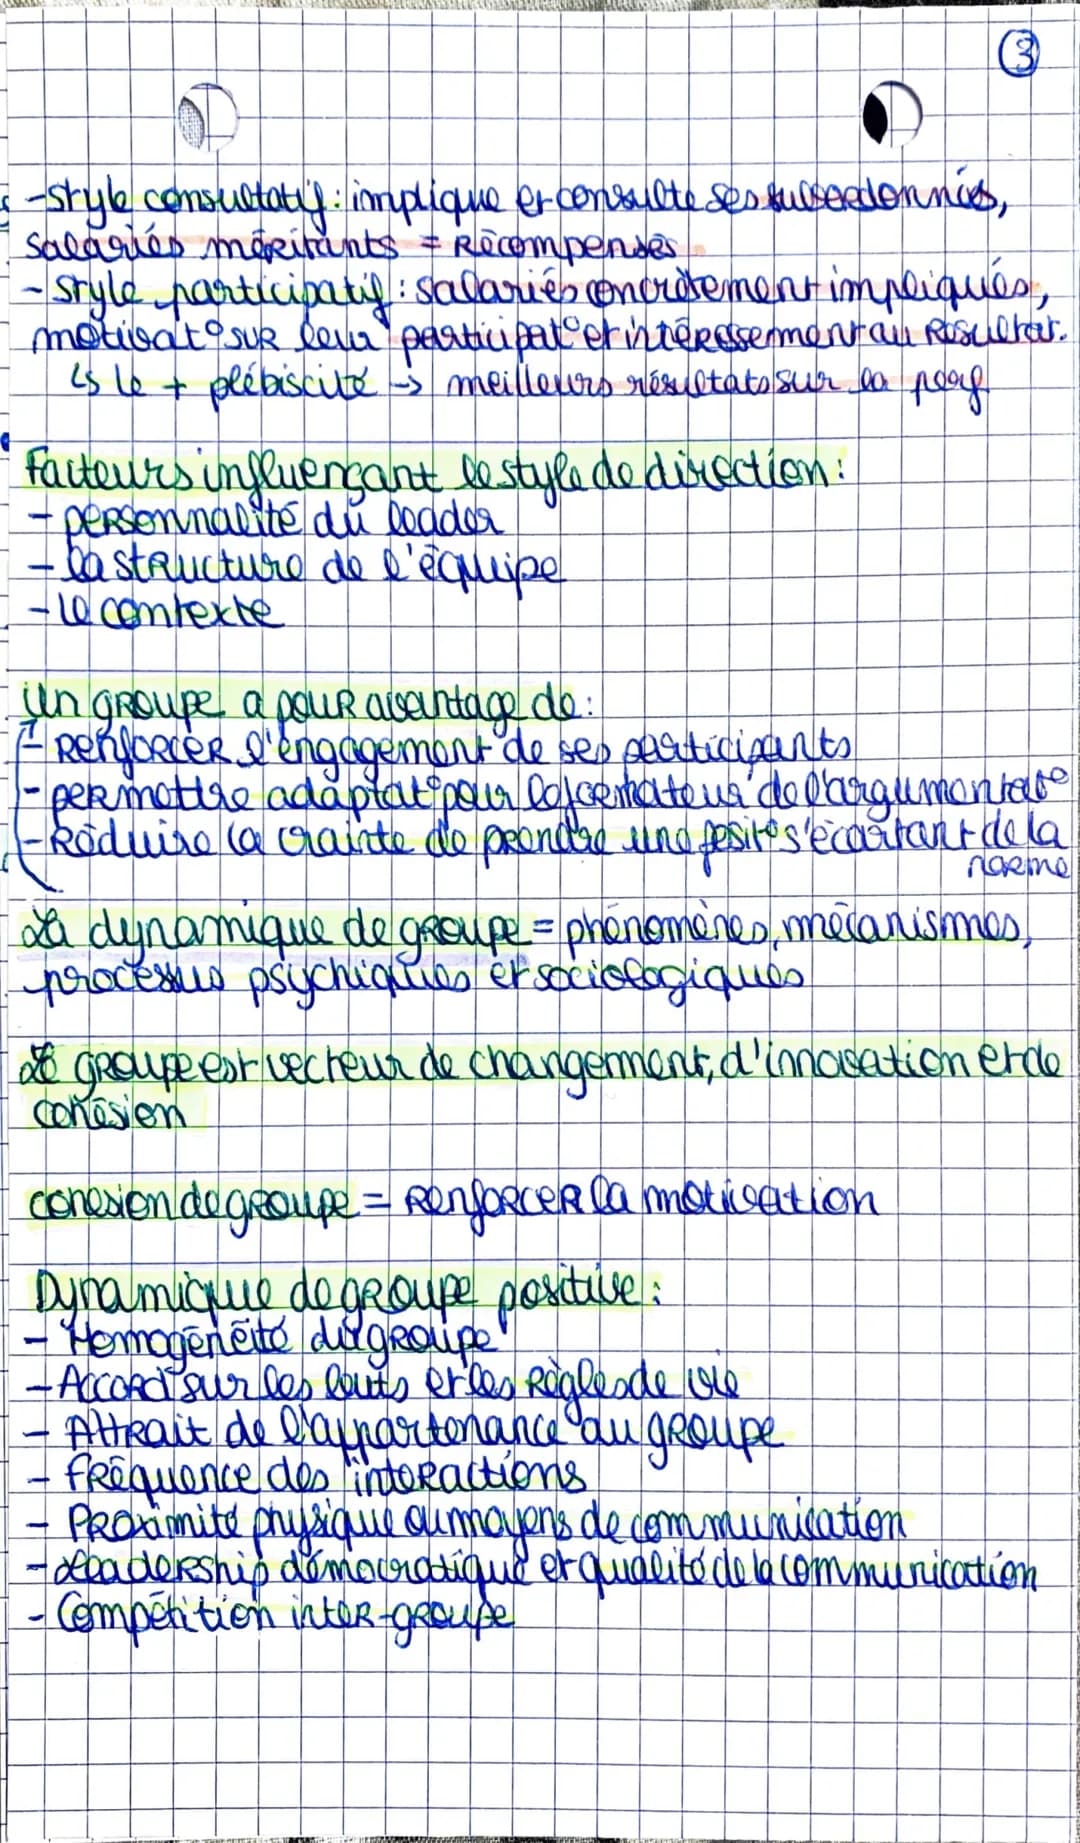 3
- Style consultatif : implique et consulte ses subordonnés,
salariés méritants = Récompensés
- Style participatif : salariés concrètement impliqués,
motivat° sur leur participat° et intéressement au Résultat.
↳ le + plébiscité → meilleurs résultats sur la perf
Facteurs influençant le style de direction :
- personnalité du leader
- la structure de l'équipe
- le contexte
Un groupe a pour avantage de :
- Renforcer l'engagement de ses participants
- permettre adaptat° pour le formateur de l'argumentat°
- Réduire la crainte de prendre une posit° s'écartant de la
norme
La dynamique de groupe = phénomènes, mécanismes,
processus psychiques et sociologiques
Le groupe est vecteur de changement, d'innovation et de
cohésion
cohesion de groupe = Renforcer la motivation
Dynamique de groupe positive :
- Homogénéité du groupe
- Accord sur les buts et les Règles de vie
- Attrait de l'appartenance au groupe
- fréquence des interactions
- Proximité physique ou moyens de communication
- Leadership démocratique et qualité de la communication
- Compétition inter-groupe